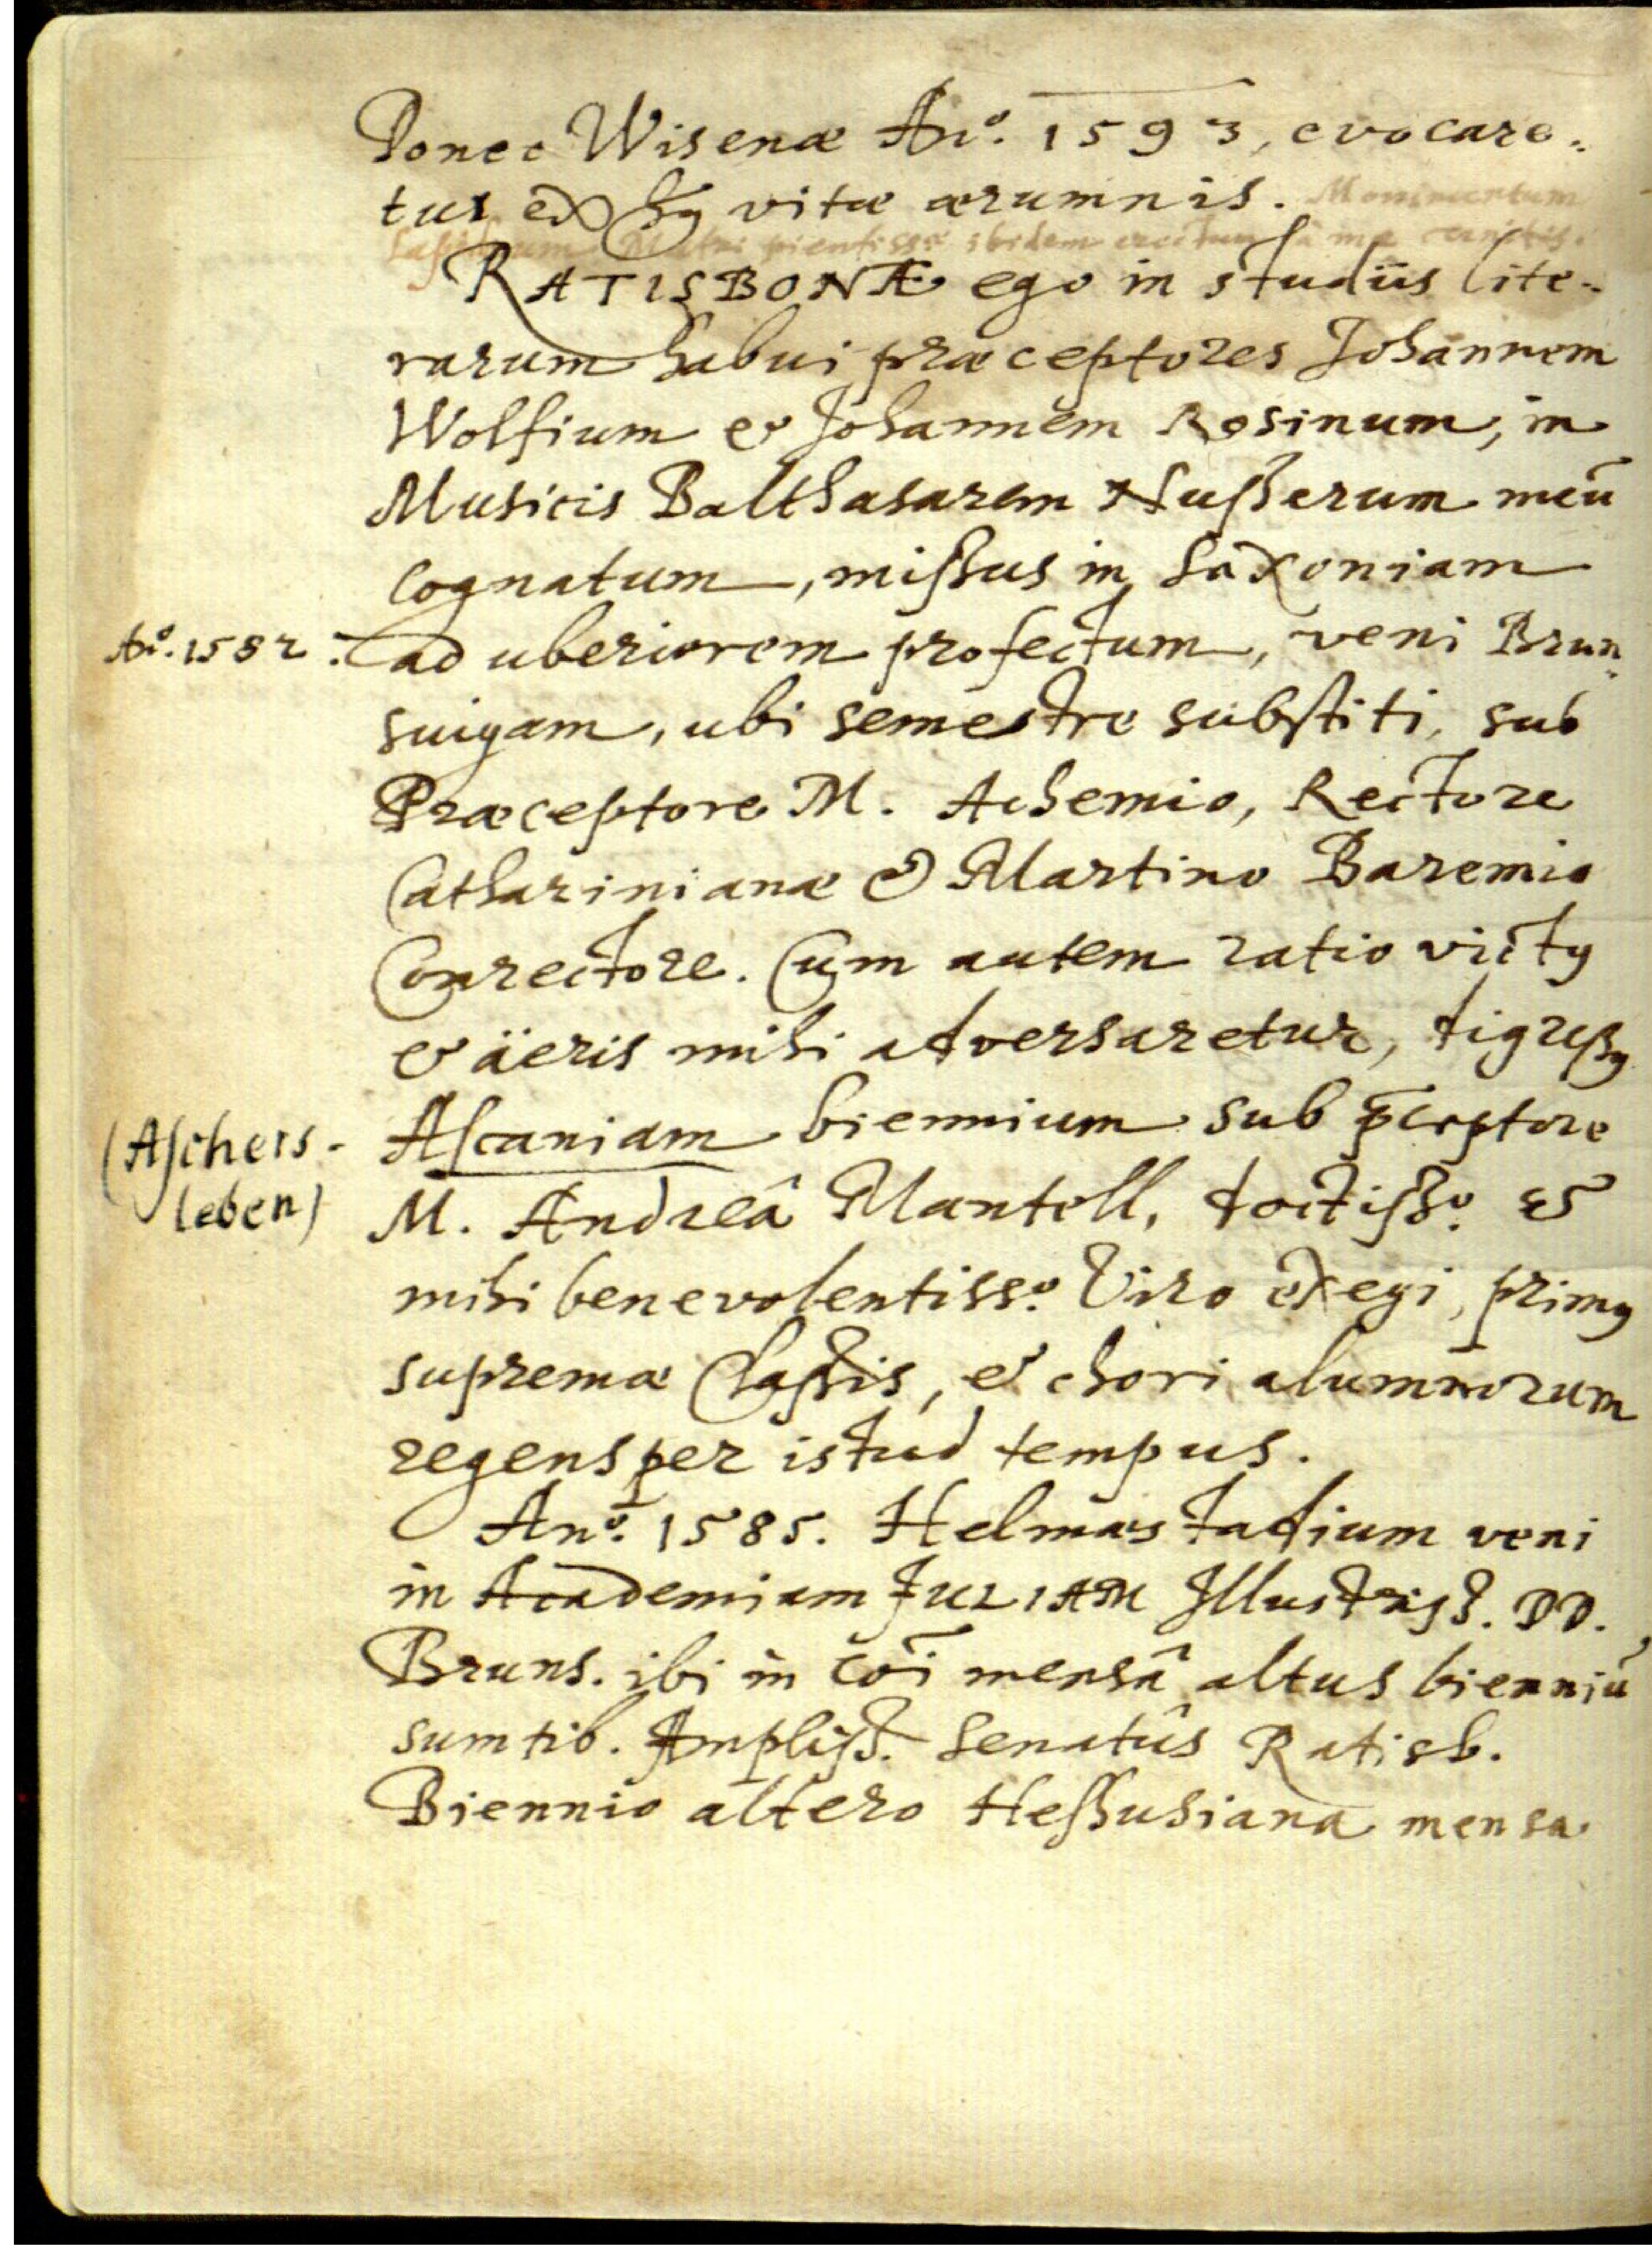 Donec Wisenæ Aṅo. 1593, evocare-
tur ex hꝰ vitæ ærumnis. Monimentum
Lapideum Matri pientissæ ibidem erectum
RATISBONÆ ego in studiis lite-
rarum habui præceptores Johannem
Wolfium et Johannem Rosinum, in
Musicis Balthasarem Nußerum meū
cognatum, mißus in Saxoniam
Aº. 1582. ad uberiorem profectum, veni Brun-
suigam, ubi semestre substiti, sub
Præceptore M. Achemio, Rectore
Cathariniana & Martino Baremio
Conrectore. Cum autem ratio victꝰ
et äeris mihi adversaretur, digreßꝰ
(Aschers- Ascaniam biennium sub p̄ceptore
leben) M. Andreâ Mantell, doctißº. et
mihi benevolentissº. Viro exegi, primꝰ
supremæ Claßis, et chori alumnorum
regens per istud tempus.
Anº. 1585. Helmæstadium veni
in Academiam JULIAM Illustriss. DD.
Bruns. ibi in cōi mensâ altus bienniū
sumtib. Ampliß. Senatûs Ratisb.
Biennio altero Heßhusiana mensa